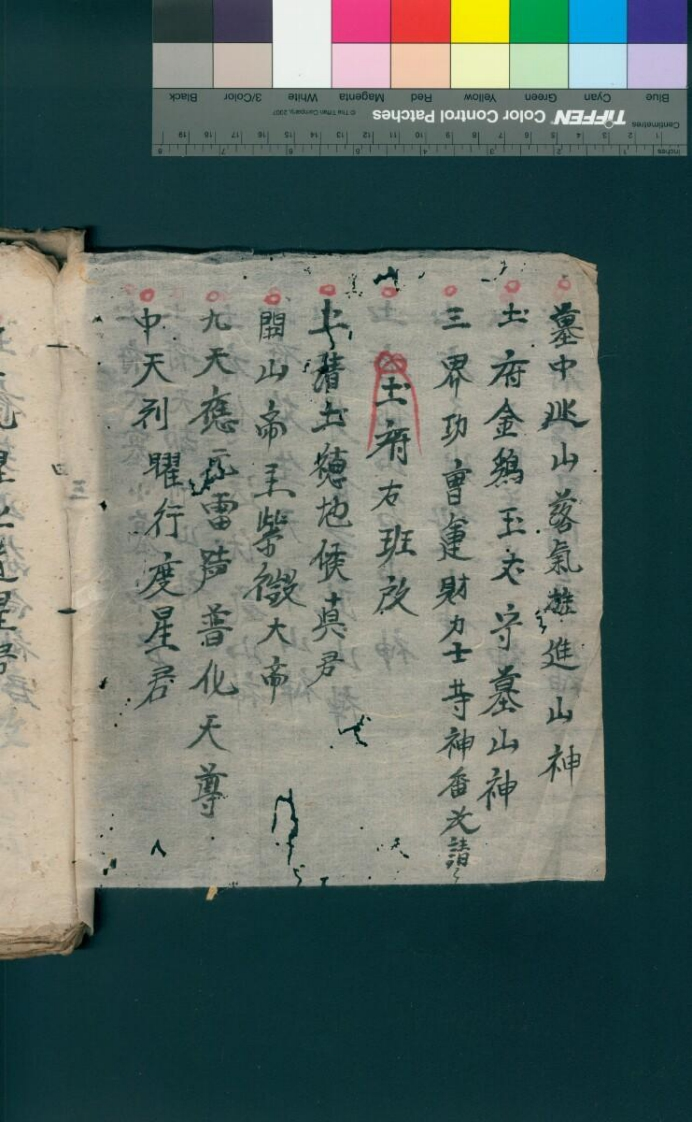 墓中此山落氣雄進山神
土府金鷄玉犬守墓山神
三界功曹運財力士等神香火請
土府右班啟
上清土德地候真君
閭山帝主紫微大帝
九天應元雷聲普化天尊
中天列曜行度星君
四
三
TIFFEN Color Control Patches
© The Tiffen Company, 2007
Centimetres
Inches
Blue
Cyan
Green
Yellow
Red
Magenta
White
3/Color
Black